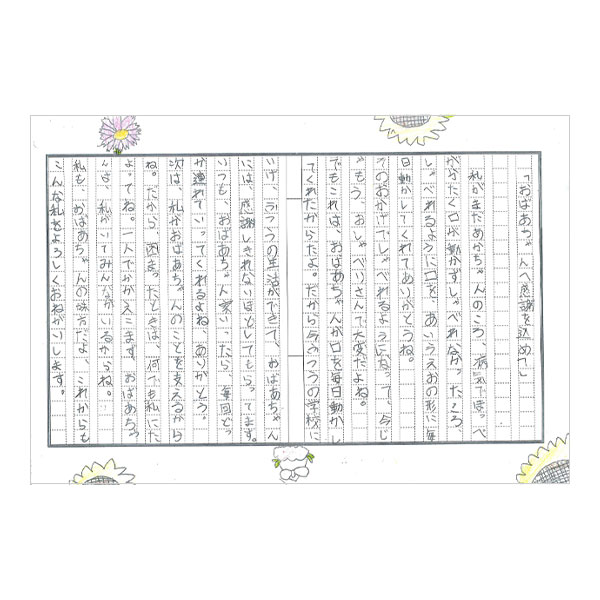 「おばあちゃんへ感謝を込めて」
私がまだあかちゃんのころ、病気でほっぺ
がかたく口が動かずしゃべれなかったころ、
しゃべれるように口を、あいうえおの形に毎
日動かしてくれてありがとうね。
そのおかげでしゃべれるようになって、今じ
ゃもう、おしゃべりさんで大変だよね。
でもこれは、おばあちゃんが口を毎日動かし
てくれたからだよ。だから今ふつうの学校に
いけ、ふつうの生活ができて、おばあちゃん
には、感謝しきれないほどしてもらってます。
いつも、おばあちゃん家いったら、毎回どっ
か連れていってくれるよね。ありがとう。
次は、私がおばあちゃんのことを支えるから
ね。だから、困まったときは、何でも私にた
よってね。一人でかかえこまず。おばあちゃ
んは、私がいてみんながいるからね。
私も、おばあちゃんの味方だよ、これからも
こんな私をよろしくおねがいします。